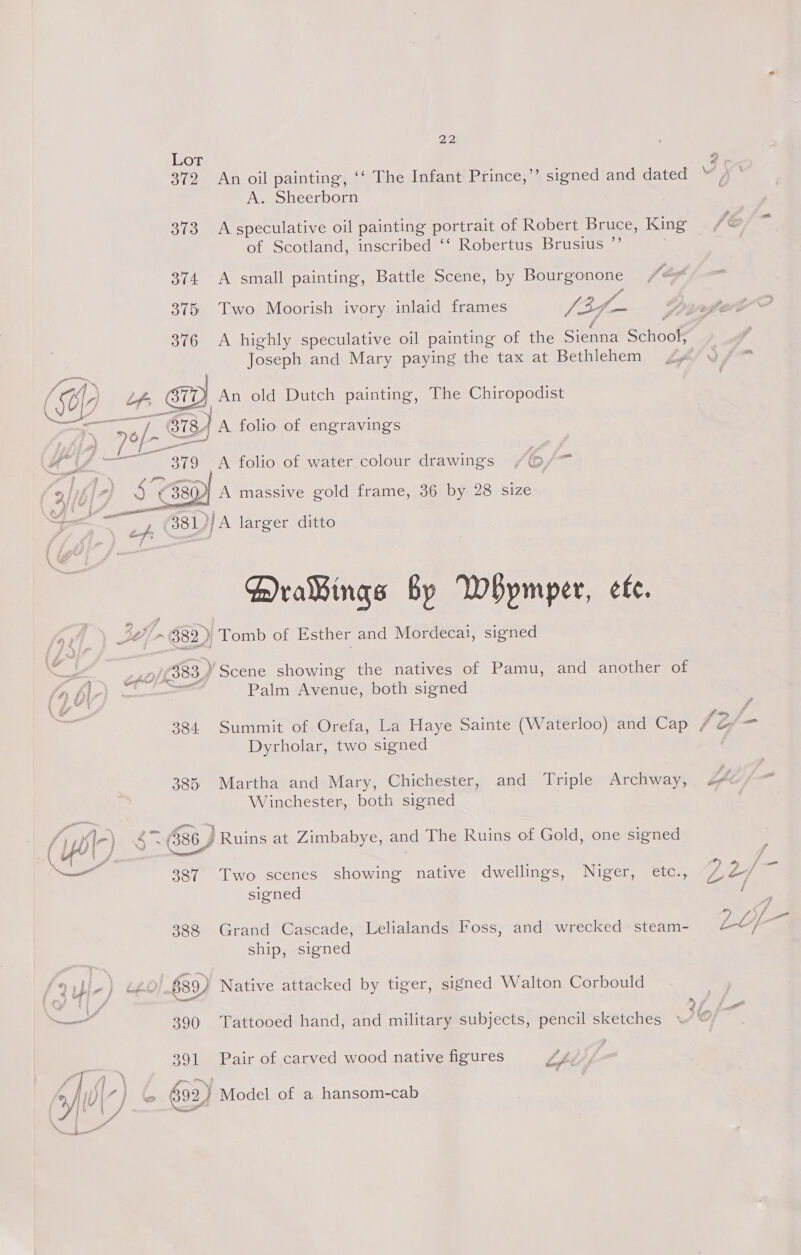 22
Lot
372 An oil painting, ‘‘ The Infant Prince,’’ signed and dated
A. Sheerborn
373 A speculative oil painting portrait of Robert Bruce, King
of Scotland, inscribed ‘‘ Robertus Brusius ’’
374 A small painting, Battle Scene, by Bourgonone
375 Two Moorish ivory inlaid frames
376 A highly speculative oil painting of the Sienna School,
Joseph and Mary paying the tax at Bethlehem
377 An old Dutch painting, The Chiropodist
378 A folio of engravings
379 A folio of water colour drawings
380 A massive gold frame, 36 by 28 size
381 A larger ditto
Drawings by Whymper, etc.
382 Tomb of Esther and Mordecai, signed
383 Scene showing the natives of Pamu, and another of
Palm Avenue, both signed
384 Summit of Orefa, La Haye Sainte (Waterloo) and Cap
Dyrholar, two signed
385 Martha and Mary, Chichester, and Triple Archway,
Winchester, both signed
386 Ruins at Zimbabye, and The Ruins of Gold, one signed
387 Two scenes showing native dwellings, Niger, etc.,
signed
388 Grand Cascade, Lelialands Foss, and wrecked steam-
ship, signed
389 Native attacked by tiger, signed Walton Corbould
390 Tattooed hand, and military subjects, pencil sketches
391 Pair of carved wood native figures
392 Model of a hansom-cab